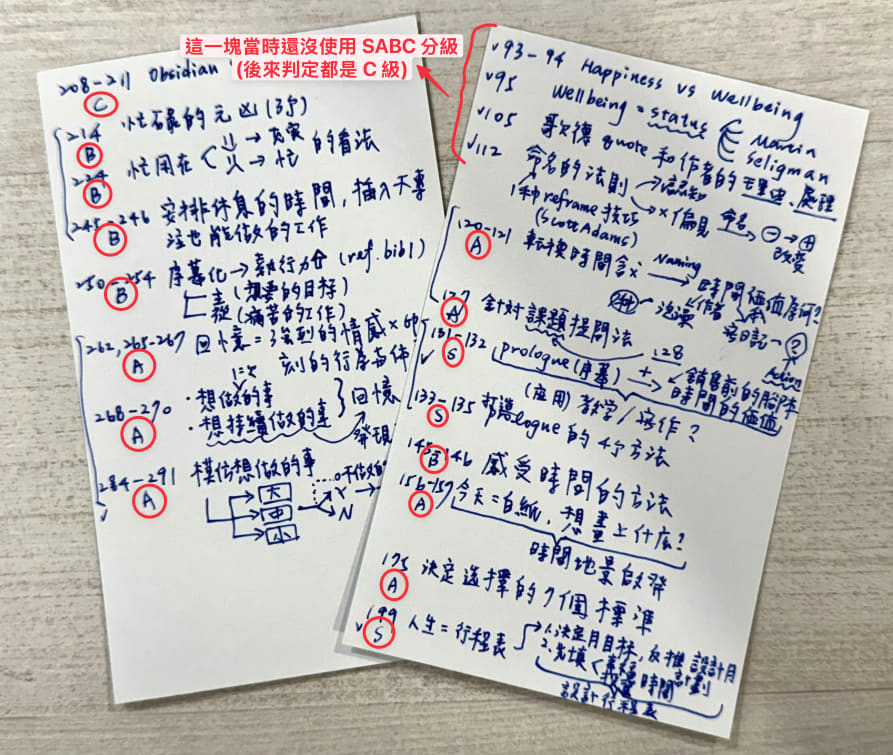 這一塊當時還沒使用 SABC 分級
(後來判定都是 C 級)
208-211 Obsidian
C
214 忙碌的元凶 (135)
B
224 忙用在 → 充實 的看法
→ 忙
B
245-246 安排休息的時間,插入不專
注也能做的工作
B
250-254 序幕化→執行力 (ref. bib1)
B
(想要的目標)
(痛苦的工作)
262, 265-267 回憶=強烈的情感×
刻的行
A
268-270 ・想做的事
・想持續做的事
回憶
發現
A
284-291 模仿想做的事
A
大
中
小
不做
Y
N
✓93-94 Happiness vs Wellbeing
✓95 Wellbeing = status
Martin
Seligman
✓105 歌德 quote 和作者的 處理
✓112 命名的法則 → 認知
→ × 偏見
命名 ⊖→⊕
改變
1種 reframe 技巧
(Scott Adams)
120-121 転換時間含× Naming
A
時間価値
作者
寫日記 → ?
127 針對課題提問法
A
131-132 prologue (序幕) +
128
銷售前的腳本
時間的価値
Action
S
✓
(应用) 教学/寫作?
133-135 logue的4個方法
S
145-146 感受時間的方法
B
156-157 今天=白紙,想畫上什麼?
A
時間地景啟發
175 決定選擇的7個標準
A
199 人生=行程表
✓
S
1. 決定月目標,反推設計月
計劃
2. 先填
時間
設計行程表